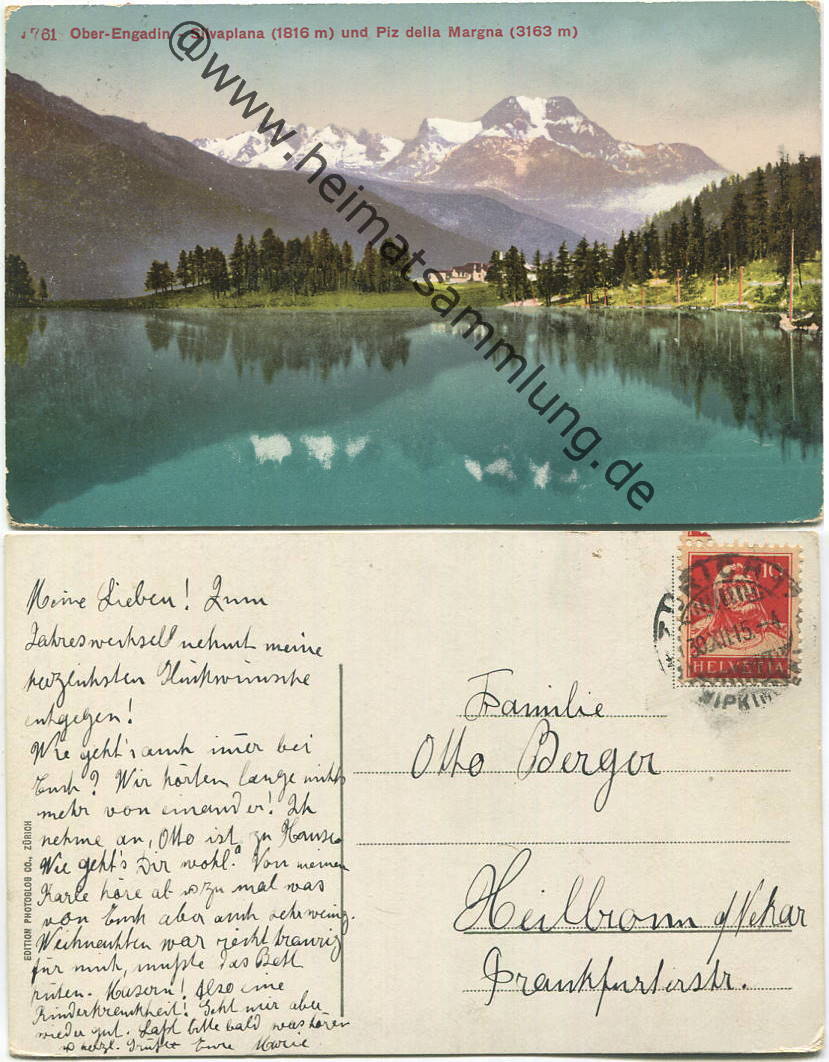 1761 Ober-Engadin - Silvaplana (1816 m) und Piz della Margna (3163 m)
@www.heimatsammlung.de
Meine Lieben! Zum
Jahreswechsel nehmt meine
herzlichsten Glückwünsche
entgegen!
Wie geht's auch immer bei
Euch? Wir hörten lange nichts
mehr von einander! Ich
nehme an, Otto ist zu Hause.
Wie geht's Dir wohl? Von meinem
Karle höre ab & zu mal was
von Euch aber auch sehr wenig.
Weihnachten war recht traurig
für mich, mußte das Bett
hüten. Masern! Also eine
Kinderkrankheit! Geht mir aber
wieder gut. Laßt bitte bald was hören
& herzl. Grüße Eure Marie
EDITION PHOTOGLOB CO., ZÜRICH
10
HELVETIA
ZÜRICH
30.XII.15.-4
WIPKINGEN
Familie
Otto Berger
Heilbronn a/Nekar
Frankfurterstr.